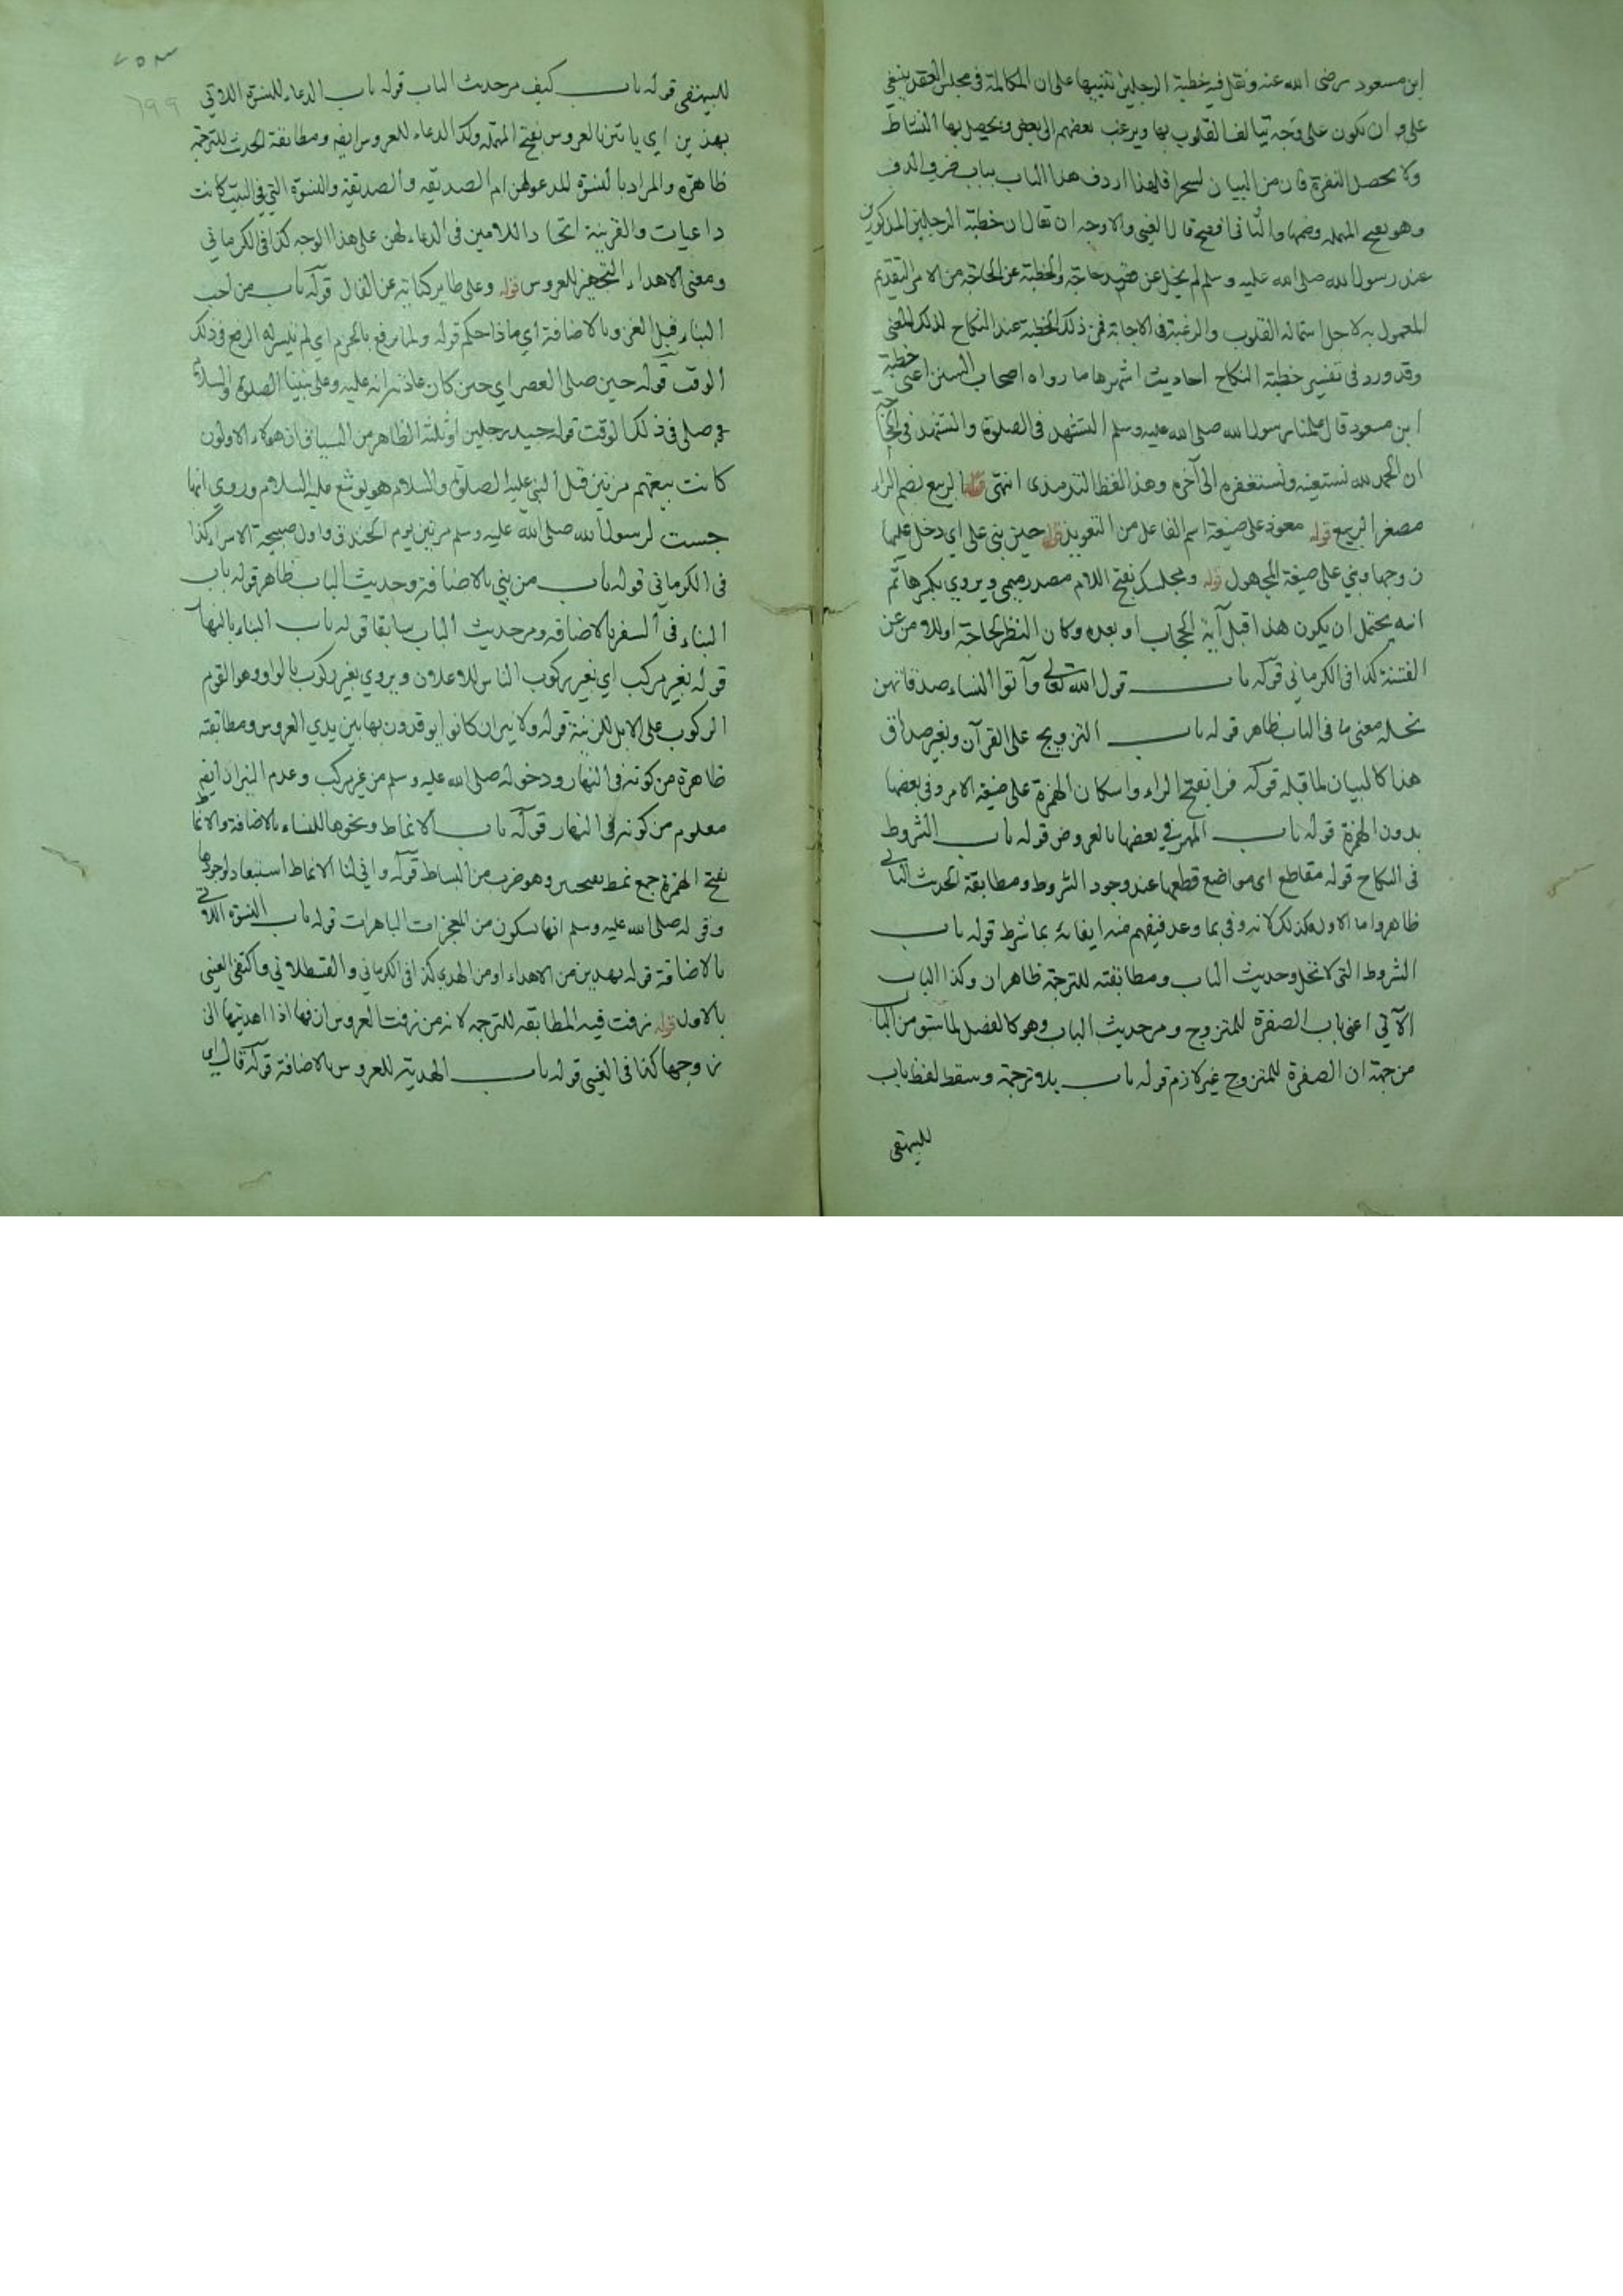 ابن مسعود رضى الله عنه ونقل فيه خطبة الرجلين تنبيها على ان المكالمة فى مجلس العقد ينبغى
ان تكون على وجه تيالف القلوب بها ويرغب بعضهم الى بعض ويحصل بها النشاط
ولا يحصل النفرة فان من البيان لسحرا فلهذا اردف هذا الباب بباب ضرب الدف
وهو بفتح المهمله وضمها والثانى افصح قال العينى والاوجه ان يقال ان خطبة الرجلين المذكورين
عند رسول الله صلى الله عليه وسلم لم يخل عن قصد حاجة والخطبة عن الحاجة من الامر القديم
المعمول به لاجل استمالة القلوب والرغبة فى الاجابة فمن ذلك الخطبة عند النكاح لذلك المعنى
وقد ورد فى تفسير خطبة النكاح احاديث اشهرها ما رواه اصحاب السنن اعنى خطبة
ابن مسعود قال علمنا رسول الله صلى الله عليه وسلم التشهد فى الصلوة والتشهد فى الحاجة
ان الحمد لله نستعينه ونستغفره الى آخره وهذا لفظ الترمذى انتهى قوله الربيع بضم الراء
مصغر الربيع قوله معوذ على صيغة اسم الفاعل من التعويذ قوله حين بنى على اي دخل عليها
زوجها وبني على صيغة المجهول قوله ومجلسك بفتح اللام مصدر ميمى ويروي بكسرها ثم
انه يحتمل ان يكون هذا قبل آية الحجاب او بعده وكان النظر لحاجة او للامن عن
الفتنة كذا فى الكرمانى قوله باب قول الله تعالى وآتوا النساء صدقاتهن
نحلة معنى ما فى الباب ظاهر قوله باب التزويج على القرآن وبغير صداق
هذا كالبيان لما قبله قوله فرا بفتح الراء واسكان الهمزة على صيغة الامر وفى بعضها
بدون الهمزة قوله باب المهر في بعضها بالعروض قوله باب الشروط
فى النكاح قوله مقاطع اى مواضع قطعها عند وجود الشروط ومطابقة الحديث الثانى
ظاهر واما الاول فكذلك لانه وفى بما وعد فيفهم منه ايفائه بما شرط قوله باب
الشروط التى لا تحل وحديث الباب ومطابقته للترجمة ظاهران وكذا الباب
الآتي اعنى باب الصفرة للمتزوج ومر حديث الباب وهو كالفصل لما سبق من الباب
من جهة ان الصفرة للمتزوج غير لازم قوله باب بلا ترجمة وسقط لفظ باب
للبيهقى
٢٥٣
٦٩٩
للبيهقى قوله باب كيف مر حديث الباب قوله باب الدعاء للنسوة اللاتي
يهدين اي ياتين بالعروس بفتح المهمله وكذا الدعاء للعروس ايضه ومطابقة الحديث للترجمة
ظاهرة والمراد بالنسوة المدعولهن ام الصديقه والصديقة والنسوة التي فى البيت كانت
داعيات والقرينة اتحاد اللامين فى الدعاء لهن على هذا الوجه كذا فى الكرمانى
ومعنى الاهداء التجهيز للعروس قوله وعلى طاير كناية عن الفال قوله باب من احب
البناء قبل الغزو بالاضافة اي ماذا حكم قوله ولما يرفع بالجزم اي لم تيسر له الرفع فى ذلك
الوقت قوله حين صلى العصر اي حين كان عليه وعلى نبينا الصلوة والسلام
صلى فى ذلك الوقت قوله جيد رجلين او ثلثة الظاهر من السياق ان هؤلاء الاولون
كانت بيعتهم مرتين قبل النبي عليه الصلوة والسلام هو يوشع عليه السلام وروى انها
حبست لرسول الله صلى الله عليه وسلم مرتين يوم الخندق واول صبيحة الاسراء كذا
فى الكرماني قوله باب من بني بالاضافة وحديث الباب ظاهر قوله باب
البناء فى السفر بالاضافه ومر حديث الباب سابقا قوله باب البناء بالنهار
قوله بغير مركب اي بغير ركوب الناس للاعلان ويروي بغير ركوب بالواو وهو القوم
الركوب على الابل للزينة قوله ولا نيران كانوا يوقدون بها بين يدي العروس ومطابقته
ظاهرة من كونه فى النهار ودخوله صلى الله عليه وسلم من غير مركب وعدم النيران ايضه
معلوم من كونه فى النهار قوله باب الانماط ونحوها للنساء بالاضافة والانماط
بفتح الهمزة جمع نمط بفتحتين وهو ضرب من البساط قوله وانى لنا الانماط استبعاد لوجودها
وقوله صلى الله عليه وسلم انها ستكون من المعجزات الباهرات قوله باب النسوة اللاتى
بالاضافة قوله يهدين من الاهداء او من الهدي كذا فى الكرمانى والقسطلانى واكتفى العينى
بالاول قوله زفت فيه المطابقه للترجمه لانه من زفت العروس ازفها اذا اهديتها الى
زوجها كذا فى العينى قوله باب الهدية للعروس بالاضافة قوله قال اي